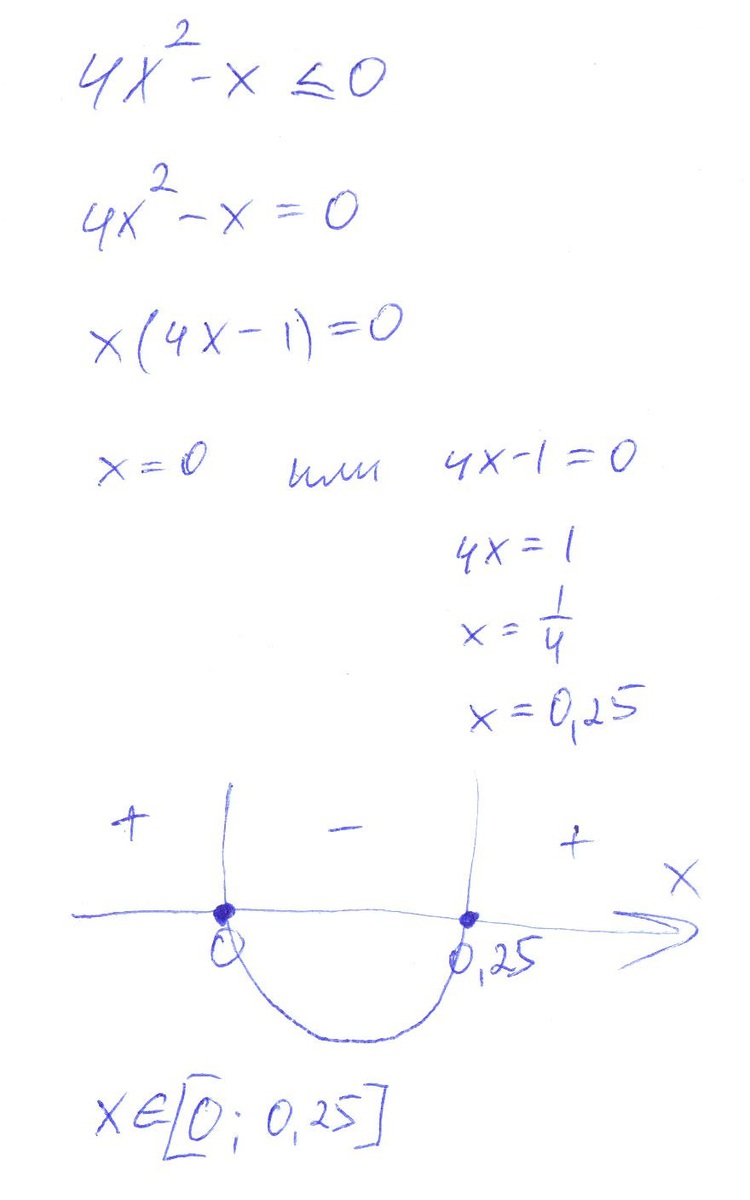 4x² - x ≤ 0
4x² - x = 0
x(4x - 1) = 0
x = 0 или 4x - 1 = 0
4x = 1
x = 1/4
x = 0,25
+ - +
x
0 0,25
x ∈ [0; 0,25]